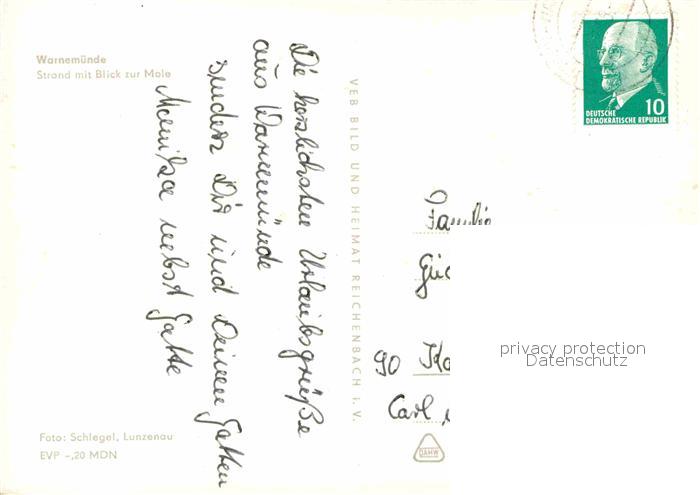 Warnemünde
Strand mit Blick zur Mole
Die herzlichsten Urlaubsgrüße
aus Warnemünde
sendet Dir und Deinem Gatten
Monika nebst Gatte
Foto: Schlegel, Lunzenau
EVP -,20 MDN
VEB BILD UND HEIMAT REICHENBACH i. V.
10
DEUTSCHE
DEMOKRATISCHE REPUBLIK
Familie
90
Carl
privacy protection
Datenschutz
DAMW